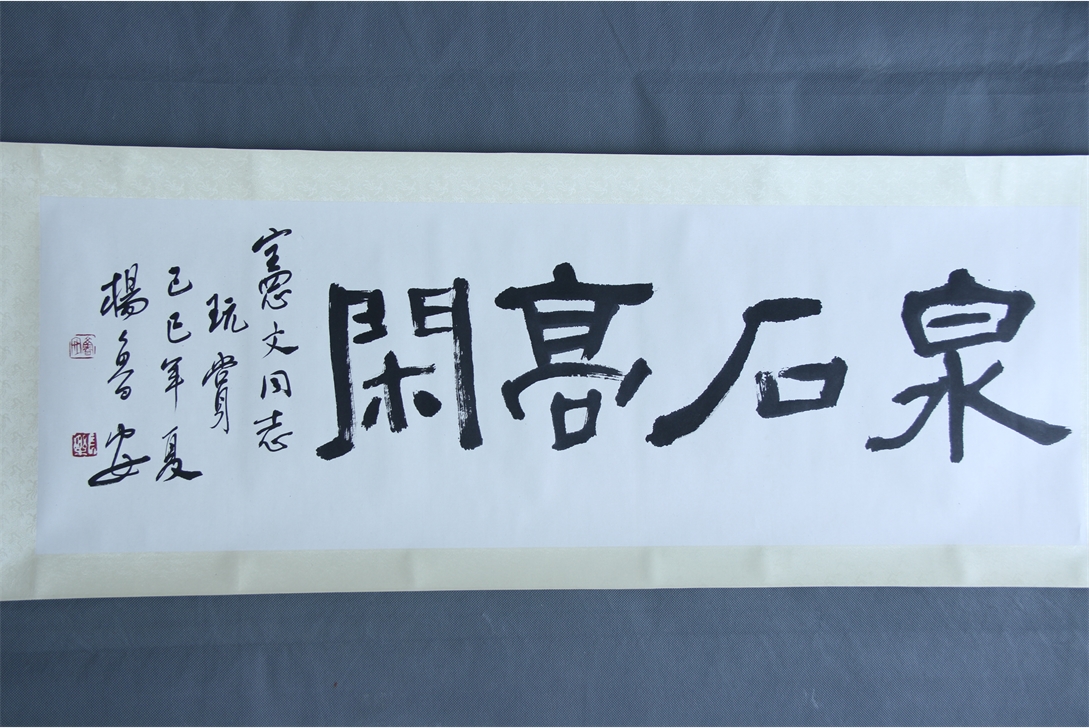 泉石高閑
憲文同志
玩賞
己巳年夏
楊魯安